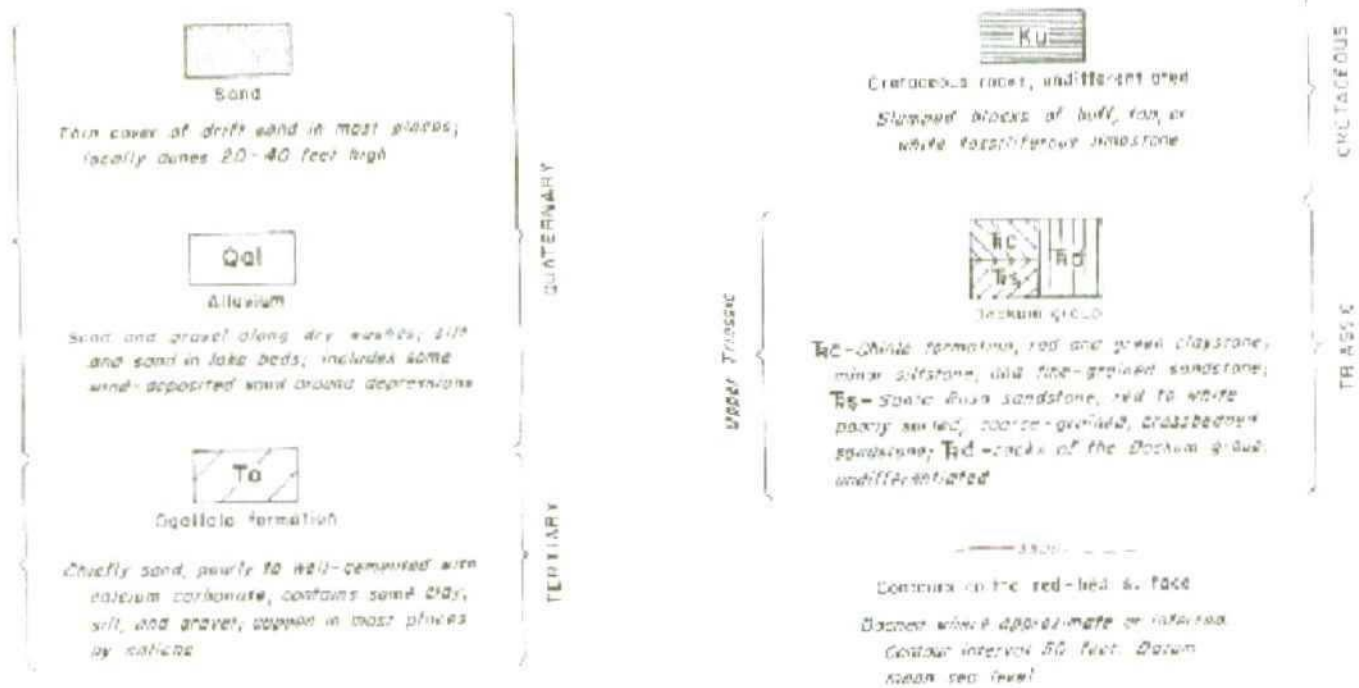 Sand
Thin cover of drift sand in most places;
locally dunes 20-40 feet high
Qal
Alluvium
Sand and gravel along dry washes; silt
and sand in lake beds; includes some
wind-deposited sand around depressions
QUATERNARY
To
Ogallala formation
Chiefly sand, poorly to well-cemented with
calcium carbonate, contains some clay,
silt, and gravel; capped in most places
by caliche
TERTIARY
Ku
Cretaceous rocks, undifferentiated
Slumped blocks of buff, tan, or
white fossiliferous limestone
CRETACEOUS
Upper Triassic
Ꞧc Ꞧd
Ꞧs
Dockum group
Ꞧc-Chinle formation, red and green claystone;
minor siltstone, and fine-grained sandstone;
Ꞧs-Santa Rosa sandstone, red to white
poorly sorted, coarse-grained, crossbedded
sandstone; Ꞧd-rocks of the Dockum group,
undifferentiated
TRIASSIC
Contours on the red-bed surface
Dashed where approximate or inferred.
Contour interval 50 feet. Datum
mean sea level